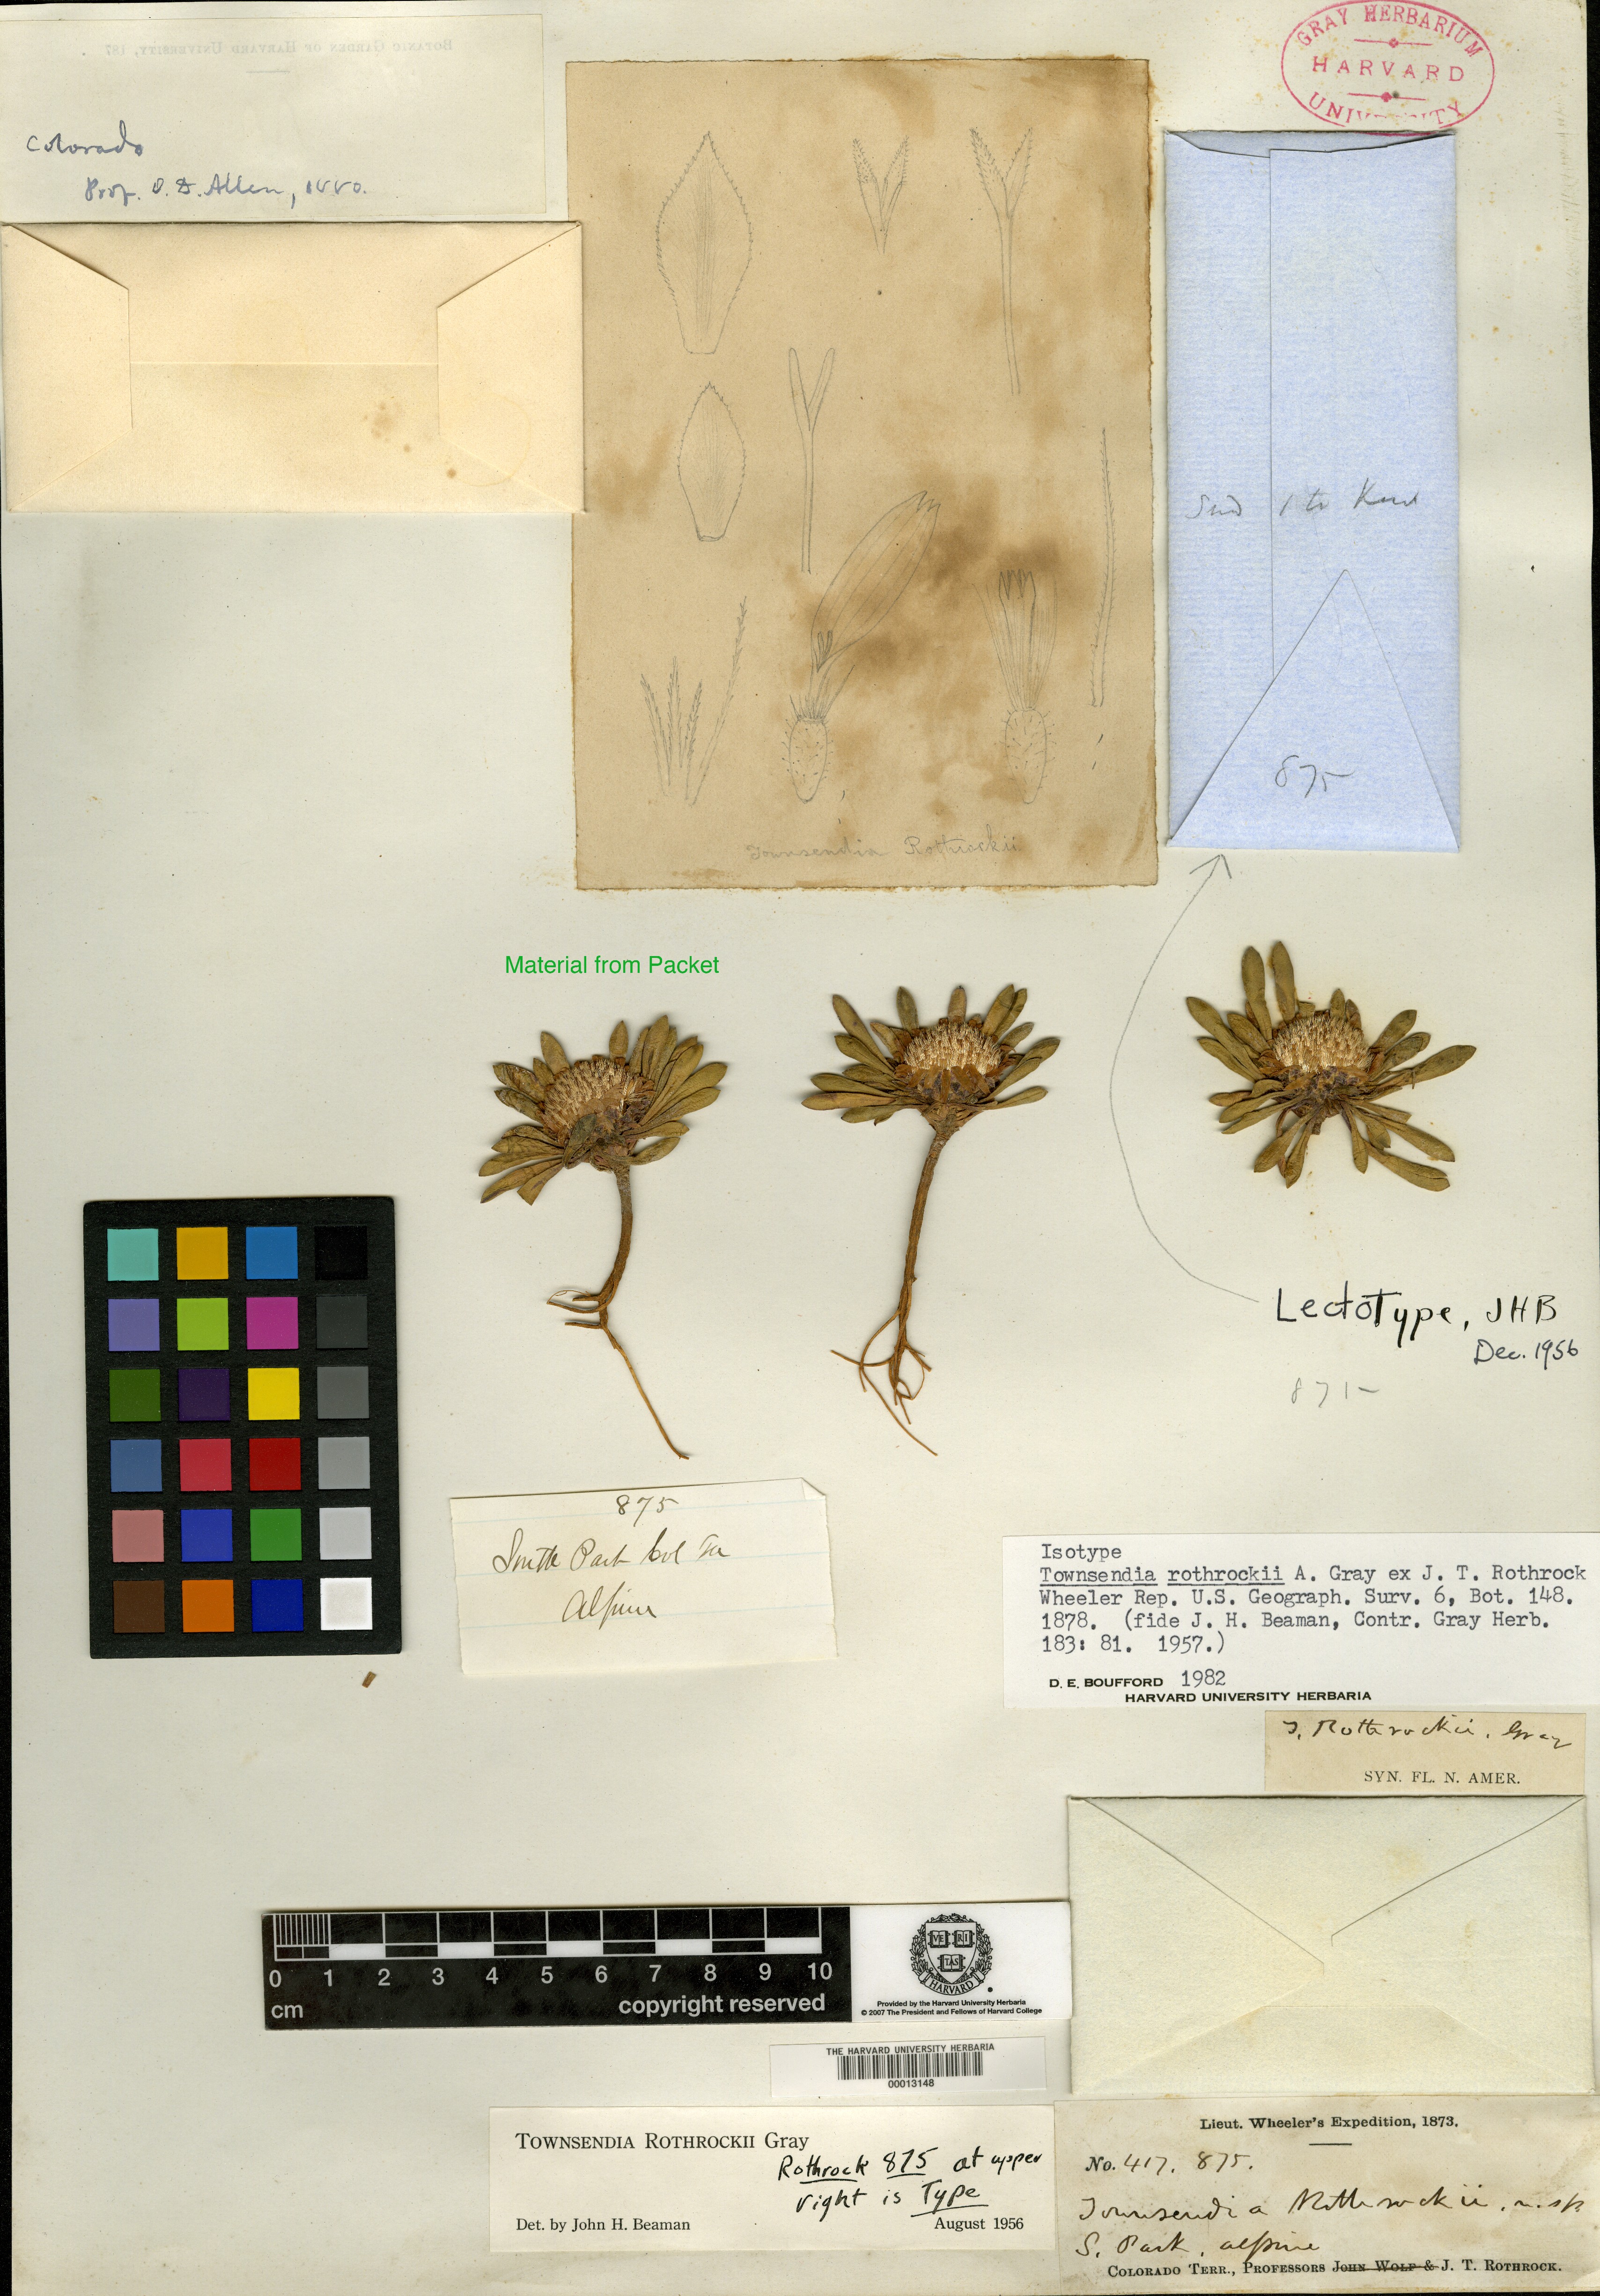 BOTANIC GARDEN OF HARVARD UNIVERSITY, 187
Colorado
Prof. O. D. Allen, 1880.
GRAY HERBARIUM
HARVARD
UNIVERSITY
Townsendia Rothrockii
875
Material from Packet
Lectotype, JHB
Dec. 1956
875
875
South Park Col Ter
Alpine
Isotype
Townsendia rothrockii A. Gray ex J. T. Rothrock
Wheeler Rep. U.S. Geograph. Surv. 6, Bot. 148.
1878. (fide J. H. Beaman, Contr. Gray Herb.
183: 81. 1957.)
D. E. BOUFFORD 1982
HARVARD UNIVERSITY HERBARIA
T. Rothrockii, Gray
SYN. FL. N. AMER.
0 1 2 3 4 5 6 7 8 9 10
cm
copyright reserved
VE RI
TAS
HARVARD
Provided by the Harvard University Herbaria
© 2007 The President and Fellows of Harvard College
THE HARVARD UNIVERSITY HERBARIA
00013148
TOWNSENDIA ROTHROCKII Gray
Rothrock 875 at upper
right is Type
Det. by John H. Beaman August 1956
Lieut. Wheeler's Expedition, 1873.
No. 417. 875.
Townsendia Rothrockii, n. sp.
S. Park, alpine
COLORADO TERR., PROFESSORS JOHN WOLF & J. T. ROTHROCK.